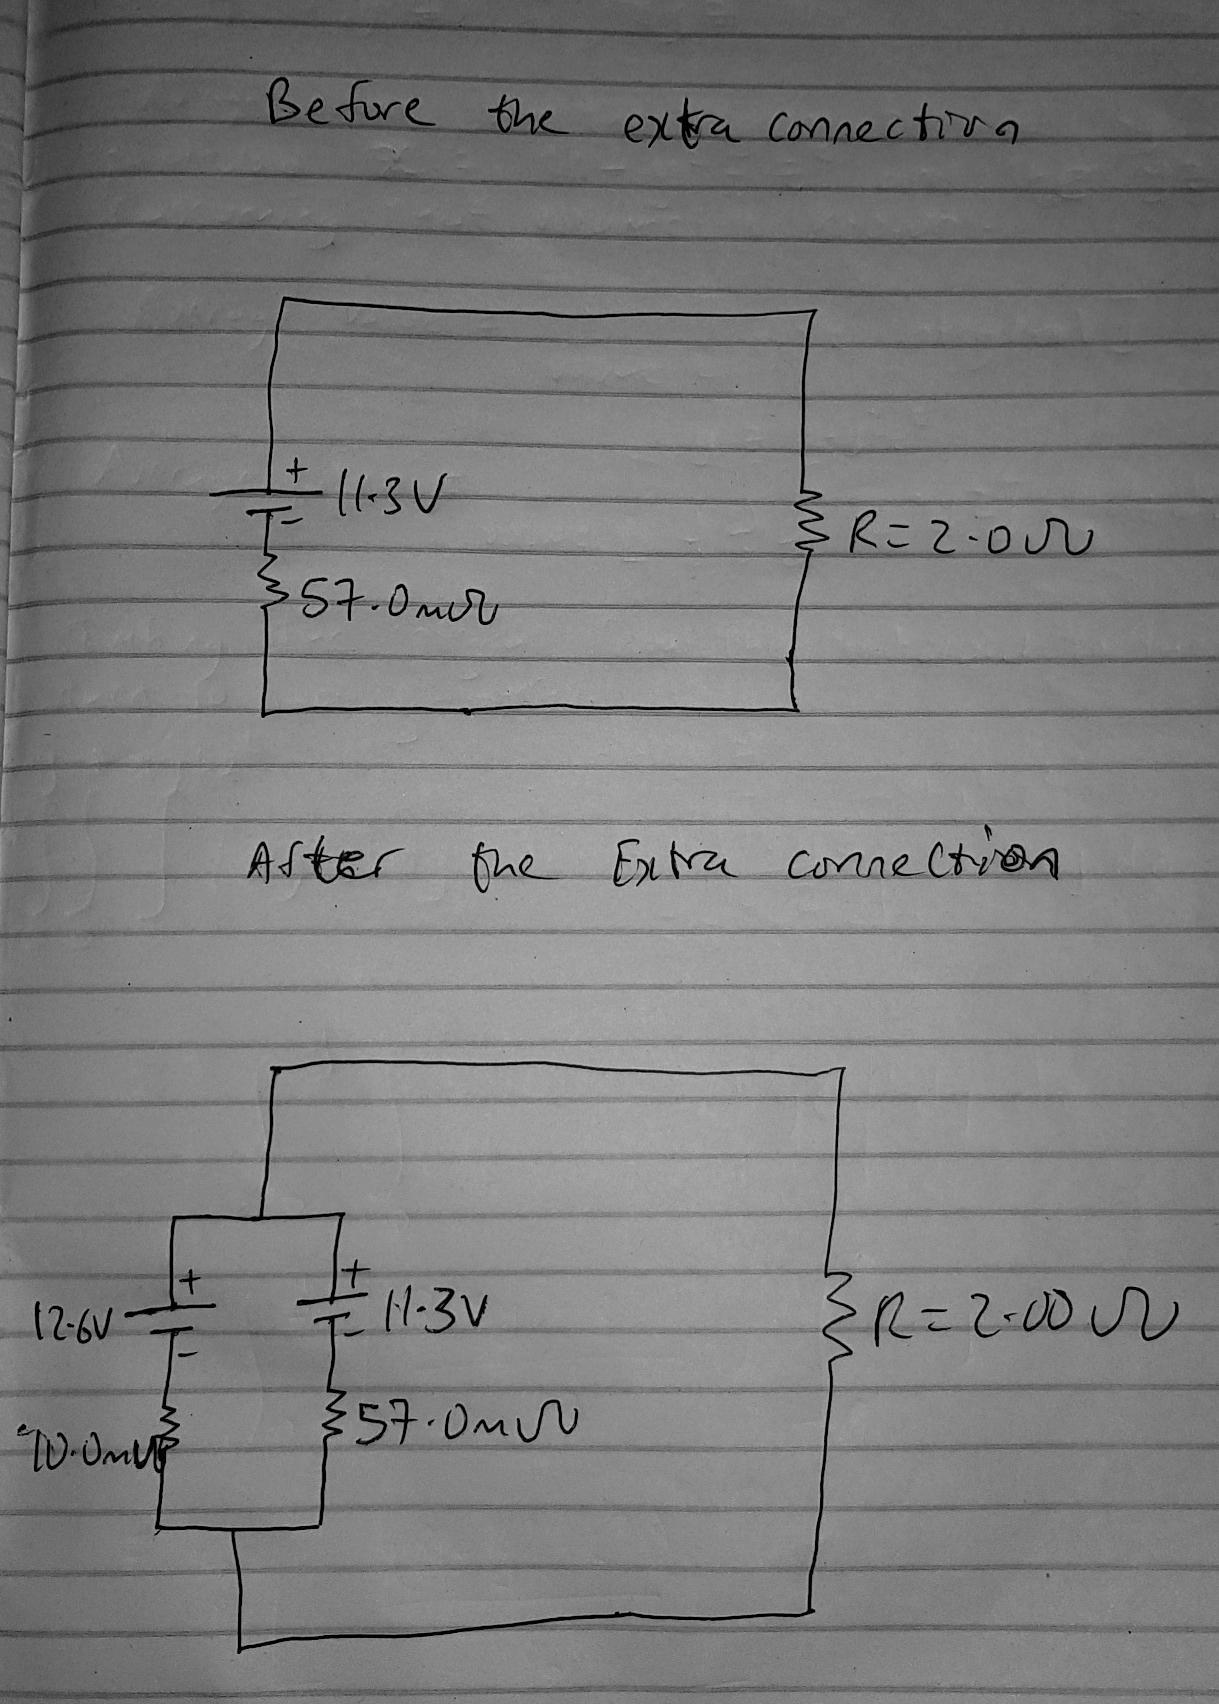 Before the extra connection
+
11.3V
-
R=2.0Ω
57.0mΩ
After the Extra connection
+ +
12.6V 11.3V R=2.00Ω
- -
57.0mΩ
10.0mΩ